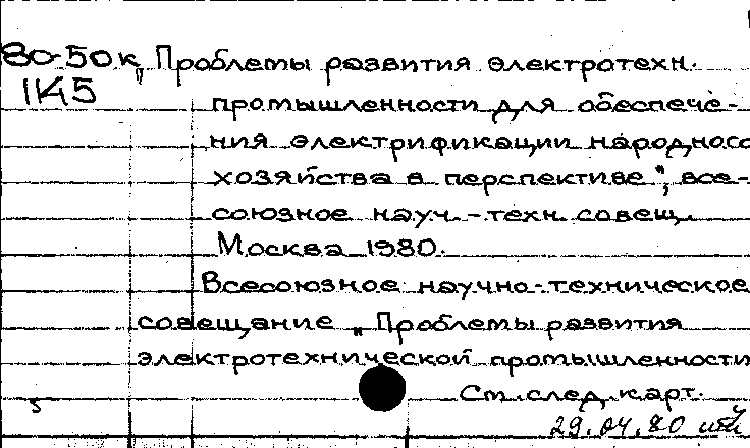 80-50к „Проблемы развития электротехн.
1145 промышленности для обеспече-
ния электрификации народного
хозяйства в перспективе", все-
союзное науч.-техн. совещ.
Москва 1980.
Всесоюзное научно-техническое
совещание „Проблемы развития
электротехнической промышленности
См. след. карт.
5
29.04.80